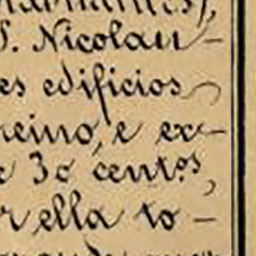 S. Nicolau-
es edificios
reino, e ex-
e 30 centos,
r ella to-